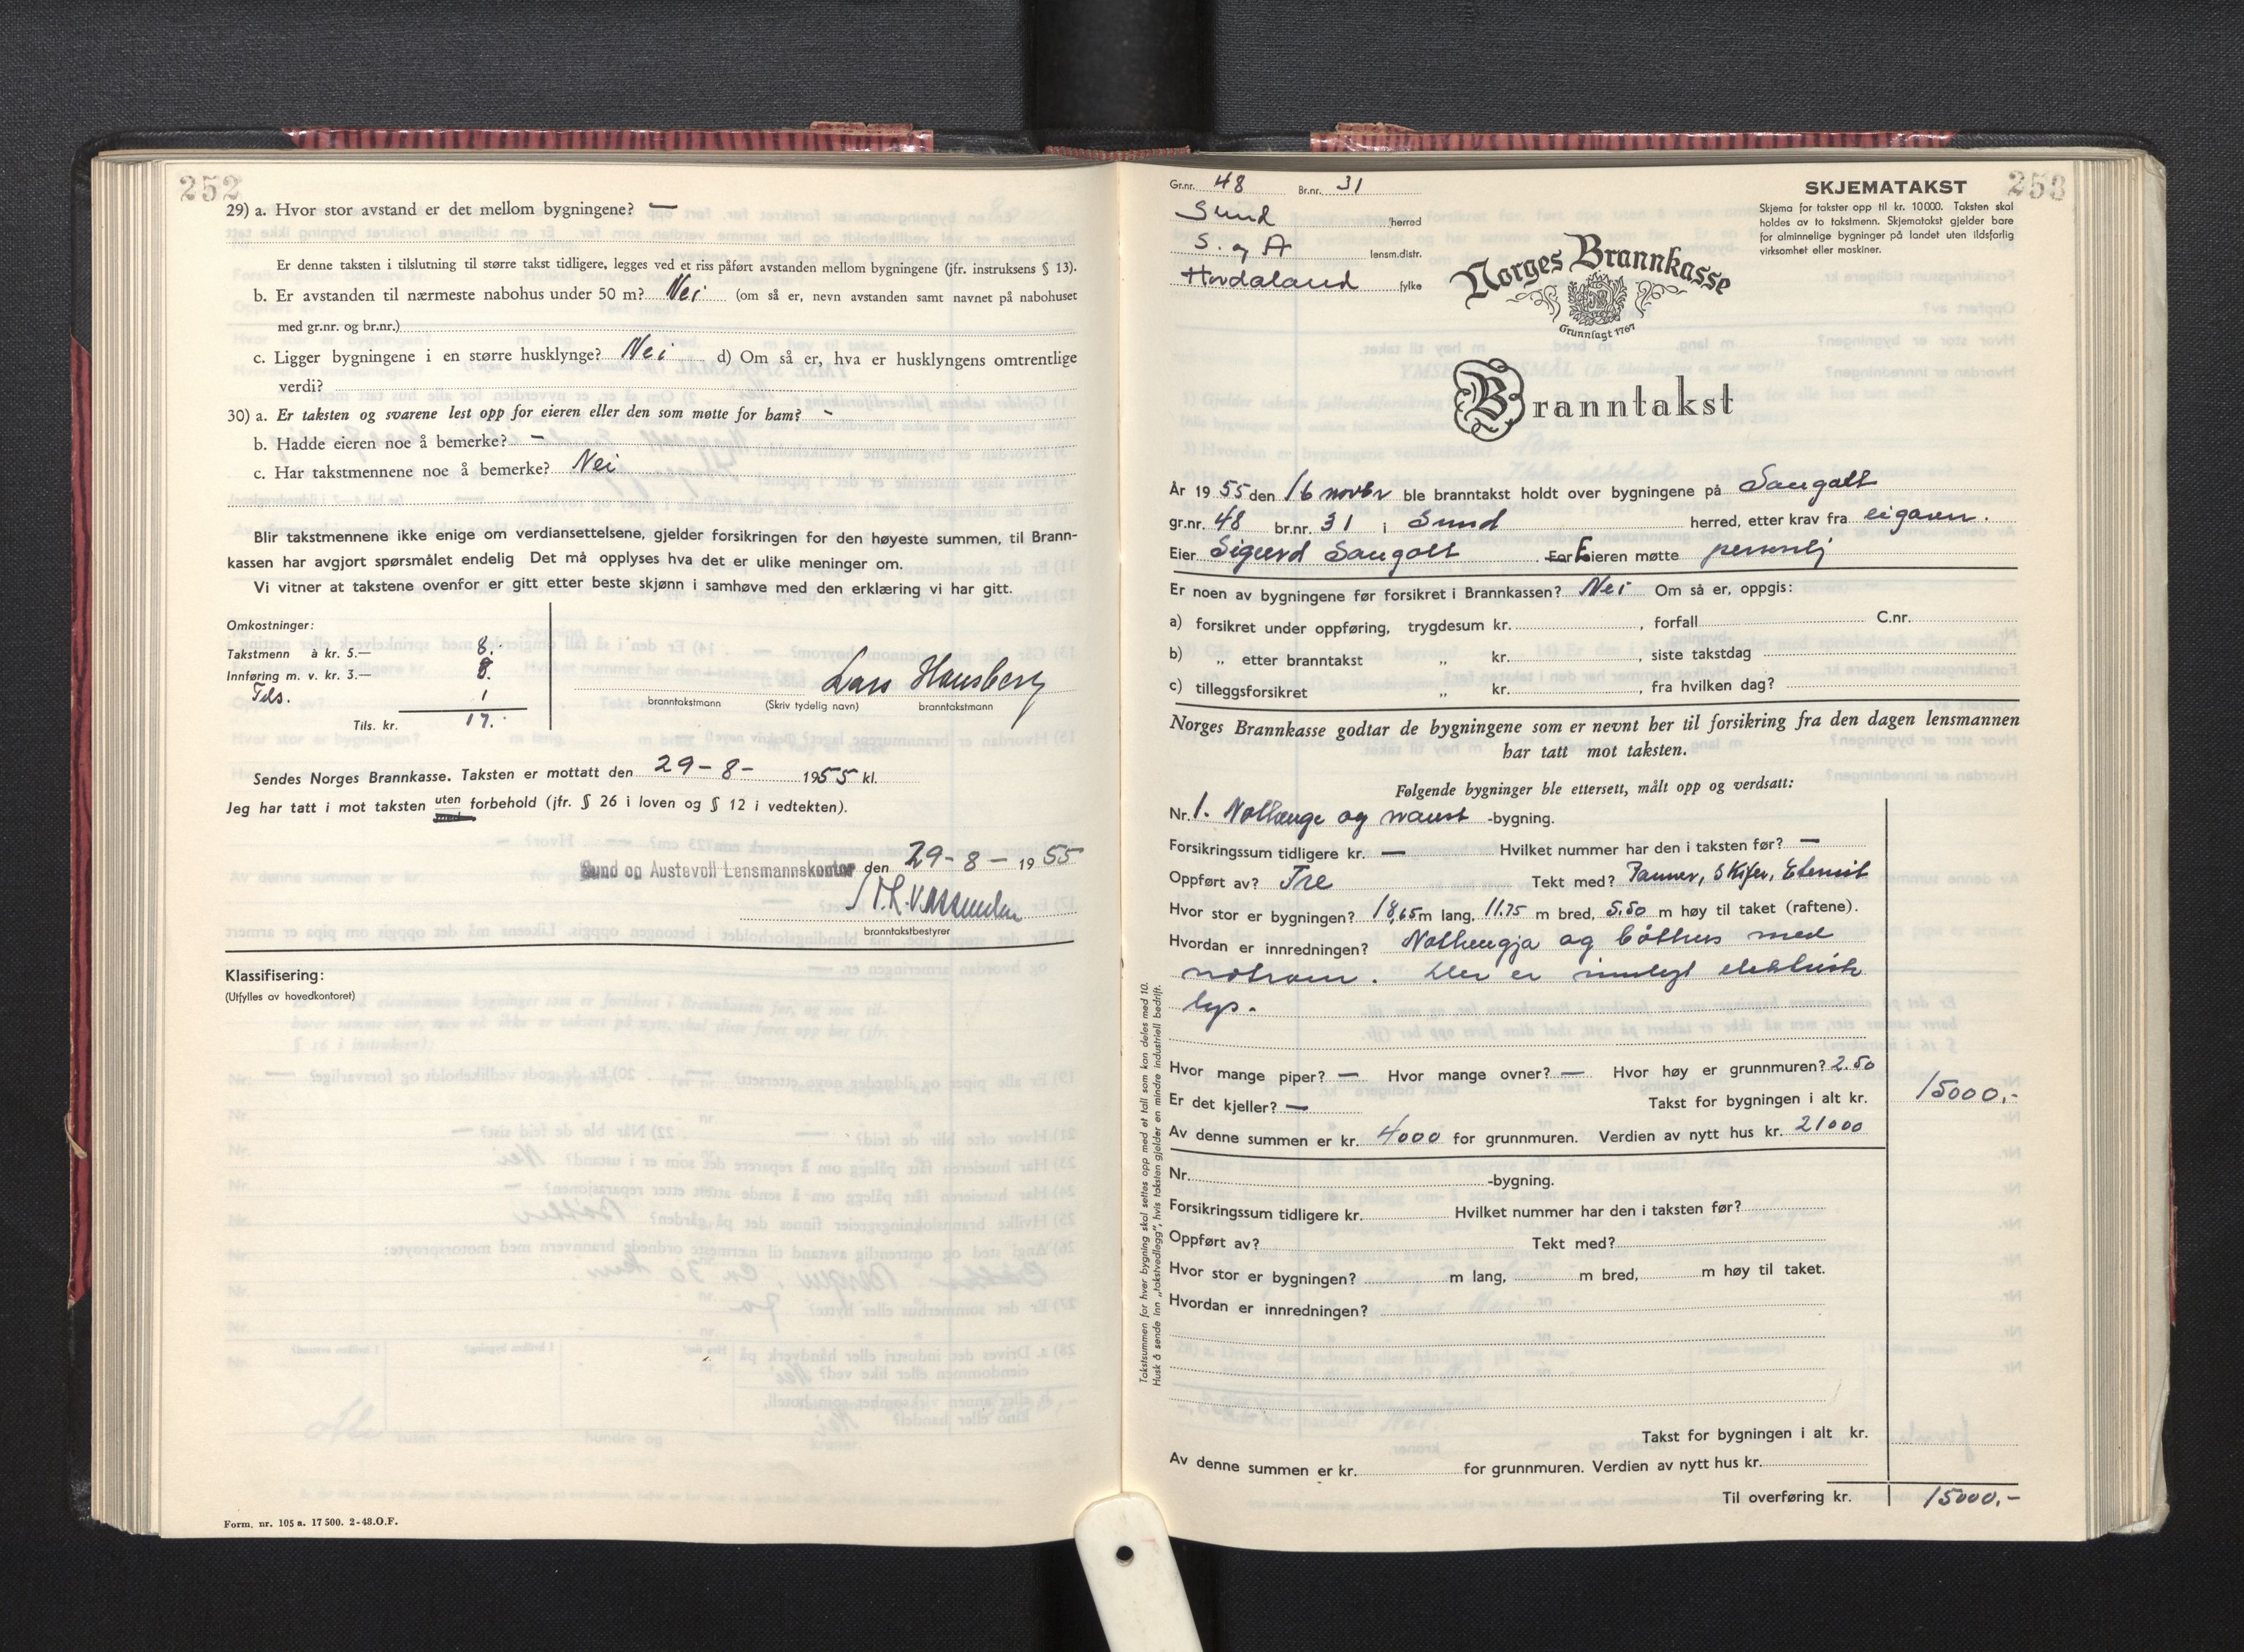 252
29) a. Hvor stor avstand er det mellom bygningene? —
Er denne taksten i tilslutning til større takst tidligere, legges ved et riss påført avstanden mellom bygningene (jfr. instruksens § 13).
b. Er avstanden til nærmeste nabohus under 50 m? Nei (om så er, nevn avstanden samt navnet på nabohuset
med gr.nr. og br.nr.)
c. Ligger bygningene i en større husklynge? Nei d) Om så er, hva er husklyngens omtrentlige
verdi?
30) a. Er taksten og svarene lest opp for eieren eller den som møtte for ham? -
b. Hadde eieren noe å bemerke? —
c. Har takstmennene noe å bemerke? Nei
Blir takstmennene ikke enige om verdiansettelsene, gjelder forsikringen for den høyeste summen, til Brann-
kassen har avgjort spørsmålet endelig Det må opplyses hva det er ulike meninger om.
Vi vitner at takstene ovenfor er gitt etter beste skjønn i samhøve med den erklæring vi har gitt.
Omkostninger:
Takstmenn à kr. 5.— 8.-
Innføring m. v. kr. 3.— 8.
Tels. 1
Tils. kr. 17.-
Lars Hausberg
branntakstmann (Skriv tydelig navn) branntakstmann
Sendes Norges Brannkasse. Taksten er mottatt den 29-8- 1955 kl.
Jeg har tatt i mot taksten uten forbehold (jfr. § 26 i loven og § 12 i vedtekten).
Sund og Austevoll Lensmannskontor den 29-8-1955
branntakstbestyrer
Klassifisering:
(Utfylles av hovedkontoret)
Form. nr. 105 a. 17 500. 2-48.O.F.
Gr.nr. 48 Br.nr. 31
Sund herred
S. og A lensm.distr.
Hordaland fylke
SKJEMATAKST 253
Skjema for takster opp til kr. 10000. Taksten skal
holdes av to takstmenn. Skjematakst gjelder bare
for alminnelige bygninger på landet uten ildsfarlig
virksomhet eller maskiner.
Norges Brannkasse
Grunnlagt 1767
Branntakst
År 1955 den 16 novbr ble branntakst holdt over bygningene på Saugalt
gr.nr. 48 br.nr. 31 i Sund herred, etter krav fra eigaren.
Eier Sigurd Saugalt . For Eieren møtte personlig
Er noen av bygningene før forsikret i Brannkassen? Nei Om så er, oppgis:
a) forsikret under oppføring, trygdesum kr. , forfall C.nr.
b) „ etter branntakst „ kr. , siste takstdag
c) tilleggsforsikret „ kr. , fra hvilken dag?
Norges Brannkasse godtar de bygningene som er nevnt her til forsikring fra den dagen lensmannen
har tatt mot taksten.
Følgende bygninger ble ettersett, målt opp og verdsatt:
Nr. 1. Nothenge og naust -bygning.
Forsikringssum tidligere kr. — Hvilket nummer har den i taksten før? —
Oppført av? Tre Tekt med? Panner, Skifer, Eternit
Hvor stor er bygningen? 18,65 m lang, 11.75 m bred, 5.50 m høy til taket (raftene).
Hvordan er innredningen? Nothengja og båthus med
notrom. Der er innlagt elektrisk
lys.
Hvor mange piper? — Hvor mange ovner? — Hvor høy er grunnmuren? 2.50
Er det kjeller? — Takst for bygningen i alt kr. 15000,-
Av denne summen er kr. 4000 for grunnmuren. Verdien av nytt hus kr. 21000
Nr. -bygning.
Forsikringssum tidligere kr. Hvilket nummer har den i taksten før?
Oppført av? Tekt med?
Hvor stor er bygningen? m lang, m bred, m høy til taket.
Hvordan er innredningen?
Takst for bygningen i alt kr.
Av denne summen er kr. for grunnmuren. Verdien av nytt hus kr.
Til overføring kr. 15000.-
Takstsummen for hver bygning skal settes opp med et tall som kan deles med 10.
Husk å sende inn „takstvedlegg", hvis taksten gjelder en mindre industriell bedrift.